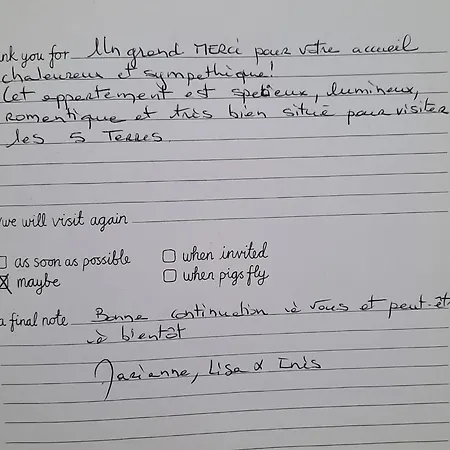 nk you for Un grand MERCI pour votre accueil
chaleureux et sympathique!
Cet appartement est spacieux, lumineux,
romantique et très bien situé pour visiter
les 5 Terres.
we will visit again
as soon as possible when invited
maybe when pigs fly
a final note Bonne continuation à vous et peut-êt
à bientôt
Marianne, Lisa & Inès